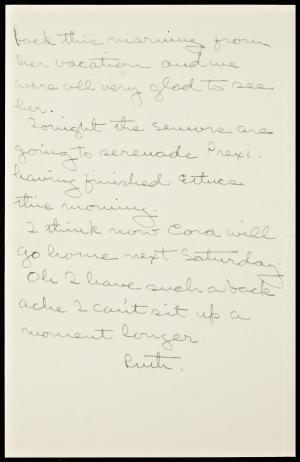 back this morning from
her vacation and we
were all very glad to see
her.
Tonight the seniors are
going to serenade Prexi.
having finished Ethics
this morning.
I think now Cora will
go home next Saturday.
Oh I have such a back
ache I can't sit up a
moment longer.
Ruth.